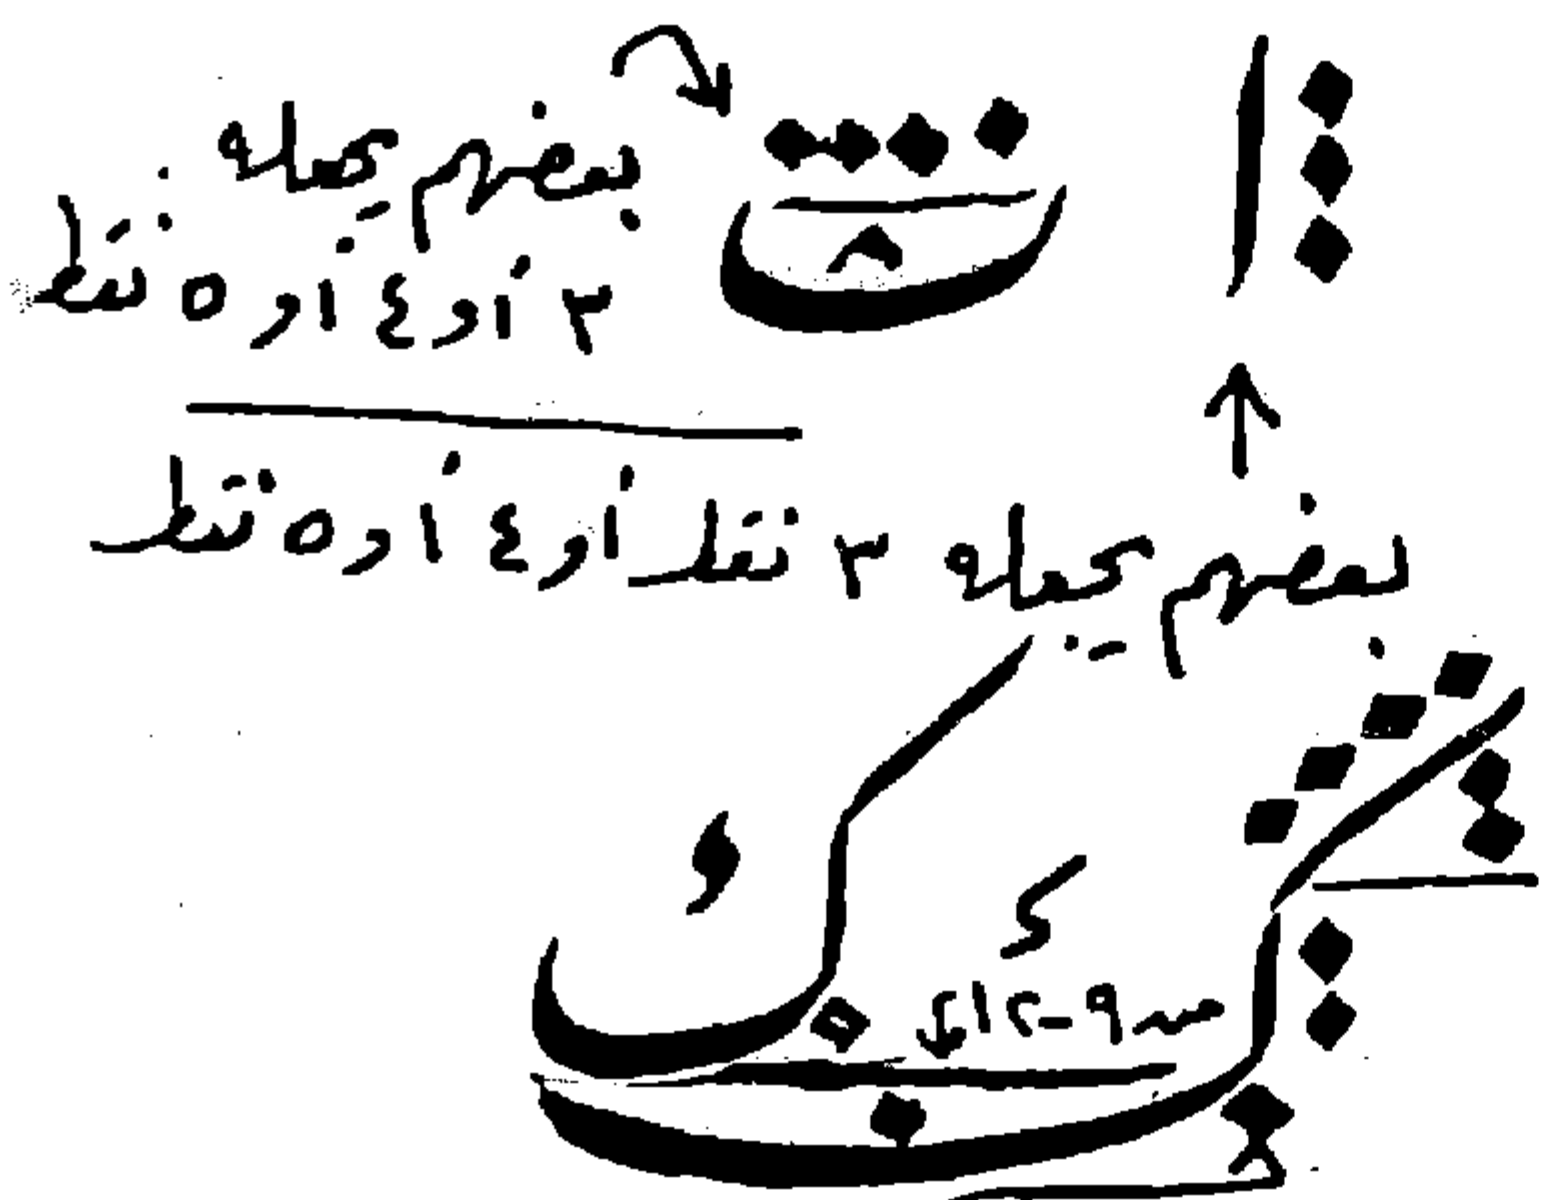 ا
بعضهم يجعله
٣ أو ٤ أو ٥ نقط
بعضهم يجعله ٣ نقط أو ٤ أو ٥ نقط
ك
من ٩-١٢